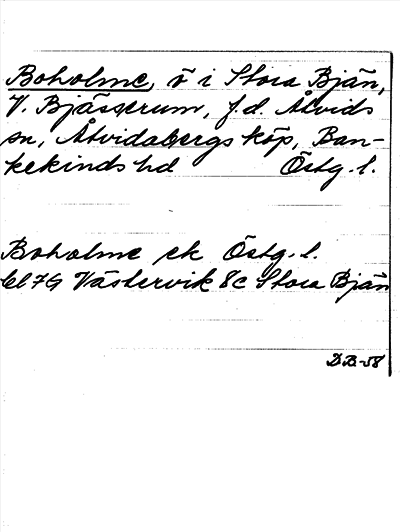 Boholme, ö i Stora Bjän,
V. Bjässerum, f.d. Åtvids
sn, Åtvidabergs köp, Ban-
kekinds hd Östg. l.
Boholme ek Östg. l.
bl 7G Västervik 8c Stora Bjän
DB-58